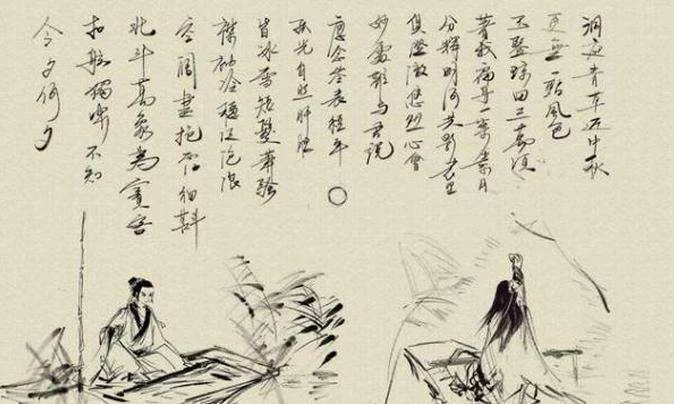 洞庭青草近中秋
更無一點風色
玉鑒瓊田三萬頃
著我扁舟一葉素月
分輝明河共影表里
俱澄澈悠然心會
妙處難與君說
應念嶺表經年
孤光自照肝膽
皆冰雪短髮蕭騷
襟袖冷穩泛滄浪
空闊盡挹西江細斟
北斗萬象為賓客
扣舷獨嘯不知
今夕何夕